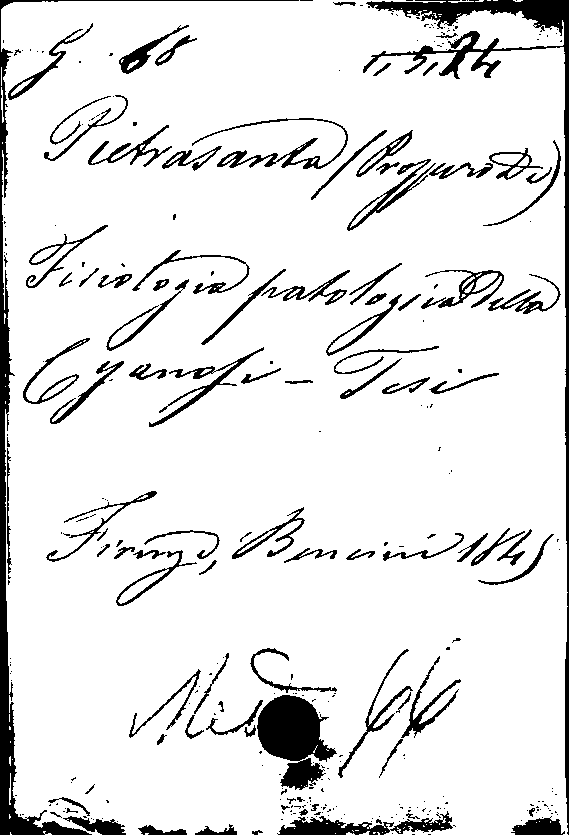 G. 68 1, 5, 24
Pietrasanta (Prospero De)
Fisiologia patologia della
Cyanosi - Tesi
Firenze, Bencini 1845
66